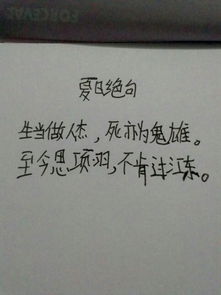 夏日绝句
生当做人杰，死亦为鬼雄。
至今思项羽，不肯过江东。